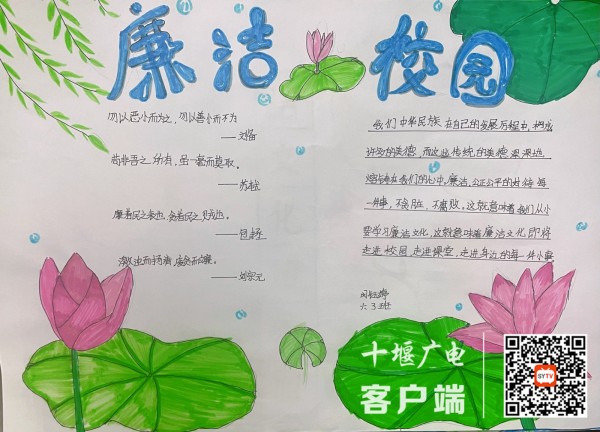 廉洁 校园
勿以恶小而为之，勿以善小而不为
——刘备
苟非吾之所有，虽一毫而莫取。
——苏轼
廉者民之表也，贪者民之贼也。
——包拯
激浊而扬清，废贪而立廉。
——刘宗元
我们中华民族，在自己的发展历程中，形成
许多的美德，而这些传统的美德深深地
熔铸在我们的心中。廉洁，公正公平的对待每
一件事，不贪脏，不腐败。这就意味着我们从小
要学习廉洁文化，这就意味着廉洁文化即将
走进校园，走进课堂，走进身边的每一件小事
六3班
十堰广电
客户端
SYTV